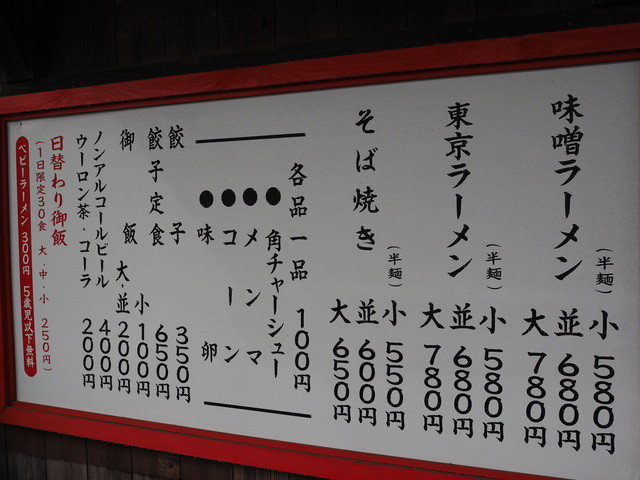 味噌ラーメン
(半麺) 小 580円
並 680円
大 780円
東京ラーメン
(半麺) 小 580円
並 680円
大 780円
そば焼き
(半麺) 小 550円
並 600円
大 650円
各品一品 100円
●角チャーシュー
●メンマ
●コーン
●味卵
餃子 350円
餃子定食 650円
小 100円
御飯 大・並 200円
ノンアルコールビール 400円
ウーロン茶・コーラ 200円
日替わり御飯
(1日限定30食 大・中・小 250円)
ベビーラーメン 300円 5歳児以下無料